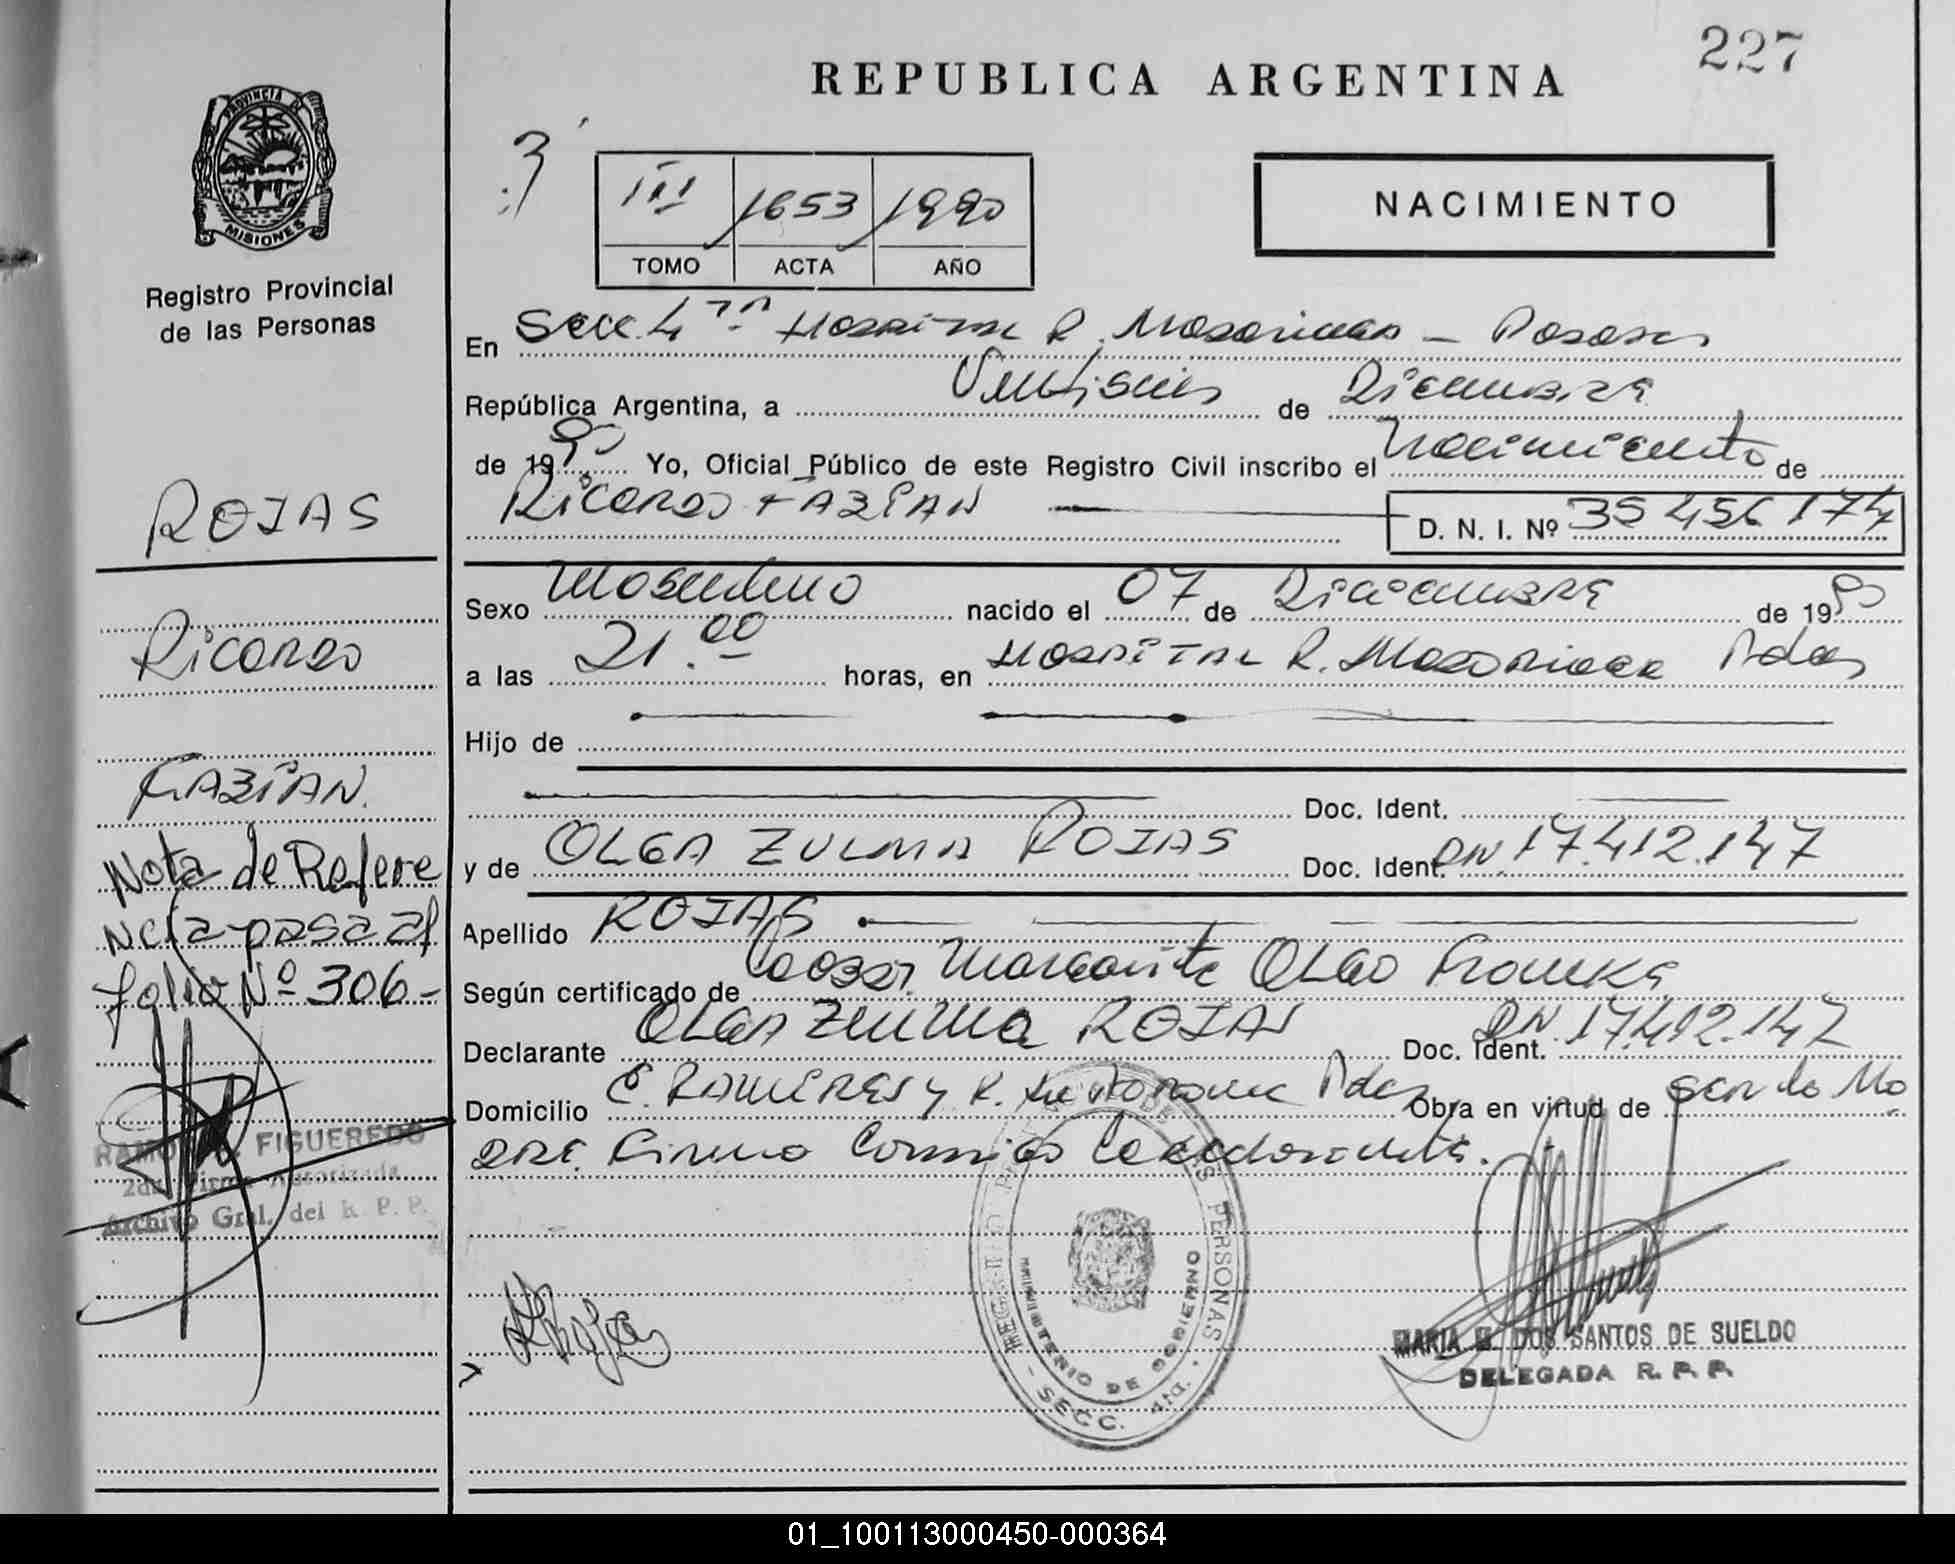 227
REPUBLICA ARGENTINA
PROVINCIA DE
MISIONES
Registro Provincial
de las Personas
3
III 1653 1990
TOMO ACTA AÑO
NACIMIENTO
En Secc. 4ta Hospital R. Madariaga - Posadas
República Argentina, a Veintiseis de Diciembre
de 1990 Yo, Oficial Público de este Registro Civil inscribo el Nacimiento de
Ricardo FABIAN
D. N. I. Nº 35 456 174
Sexo Masculino nacido el 07 de Diciembre de 1990
a las 21.00 horas, en Hospital R. Madariaga Pdas
Hijo de
Doc. Ident.
y de OLGA ZULMA ROJAS Doc. Ident. DN. 17.412.147
Apellido ROJAS
Según certificado de Margarita Olga
Declarante OLGA Zulma ROJAS Doc. Ident. DN. 17.412.147
Domicilio Pdas Obra en virtud de ser la Ma
dre. Firma
ROJAS
Ricardo
FABIAN.
Nota de Refere
ncia pasa al
folio Nº 306-
FIGUEREDO
2da. Firma Autorizada
Archivo Gral. del R. P. P.
Rojas
PERSONAS
MINISTERIO DE GOBIERNO
- SECC. 4ta. -
MARIA DOS SANTOS DE SUELDO
DELEGADA R. P. P.
01_100113000450-000364